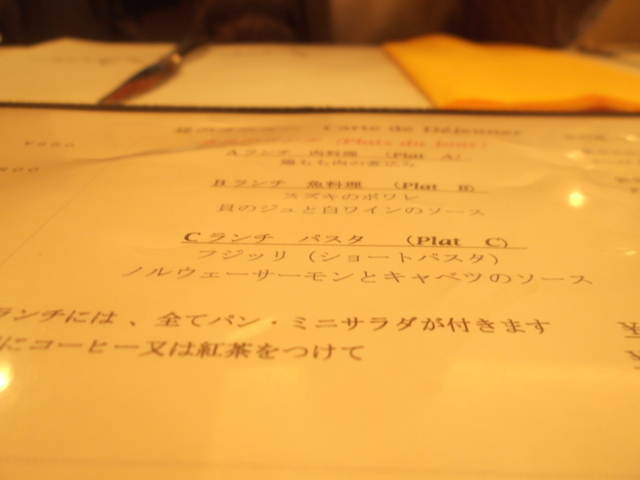 Carte de Déjeuner
(Plats du jour)
Aランチ 肉料理 (Plat A)
鶏もも肉の煮込み
Bランチ 魚料理 (Plat B)
スズキのポワレ
貝のジュと白ワインのソース
Cランチ パスタ (Plat C)
フジッリ (ショートパスタ)
ノルウェーサーモンとキャベツのソース
ランチには、全てパン・ミニサラダが付きます
にコーヒー又は紅茶をつけて